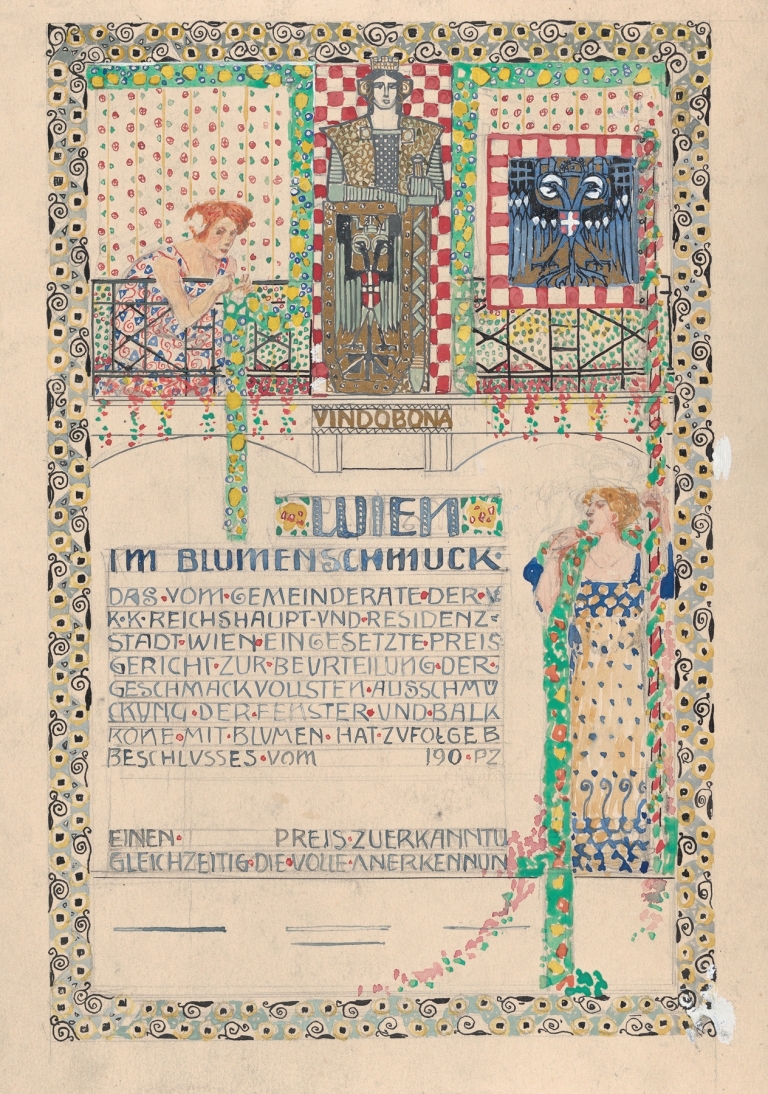 VINDOBONA
WIEN
IM BLUMENSCHMUCK·
DAS·VOM·GEMEINDERATE·DER·V
K·K·REICHSHAUPT·VND·RESIDENZ=
STADT·WIEN·EINGESETZTE·PREIS
GERICHT·ZUR·BEURTEILUNG·DER·
GESCHMACKVOLLSTEN·AUSSCHMÜ
CKUNG·DER·FENSTER·UND·BALK
KONE·MIT·BLUMEN·HAT·ZVFOLGE B
BESCHLUSSES·VOM 190·PZ
EINEN· PREIS·ZUERKANNTU
GLEICHZEITIG·DIE·VOLLE·ANERKENNUN